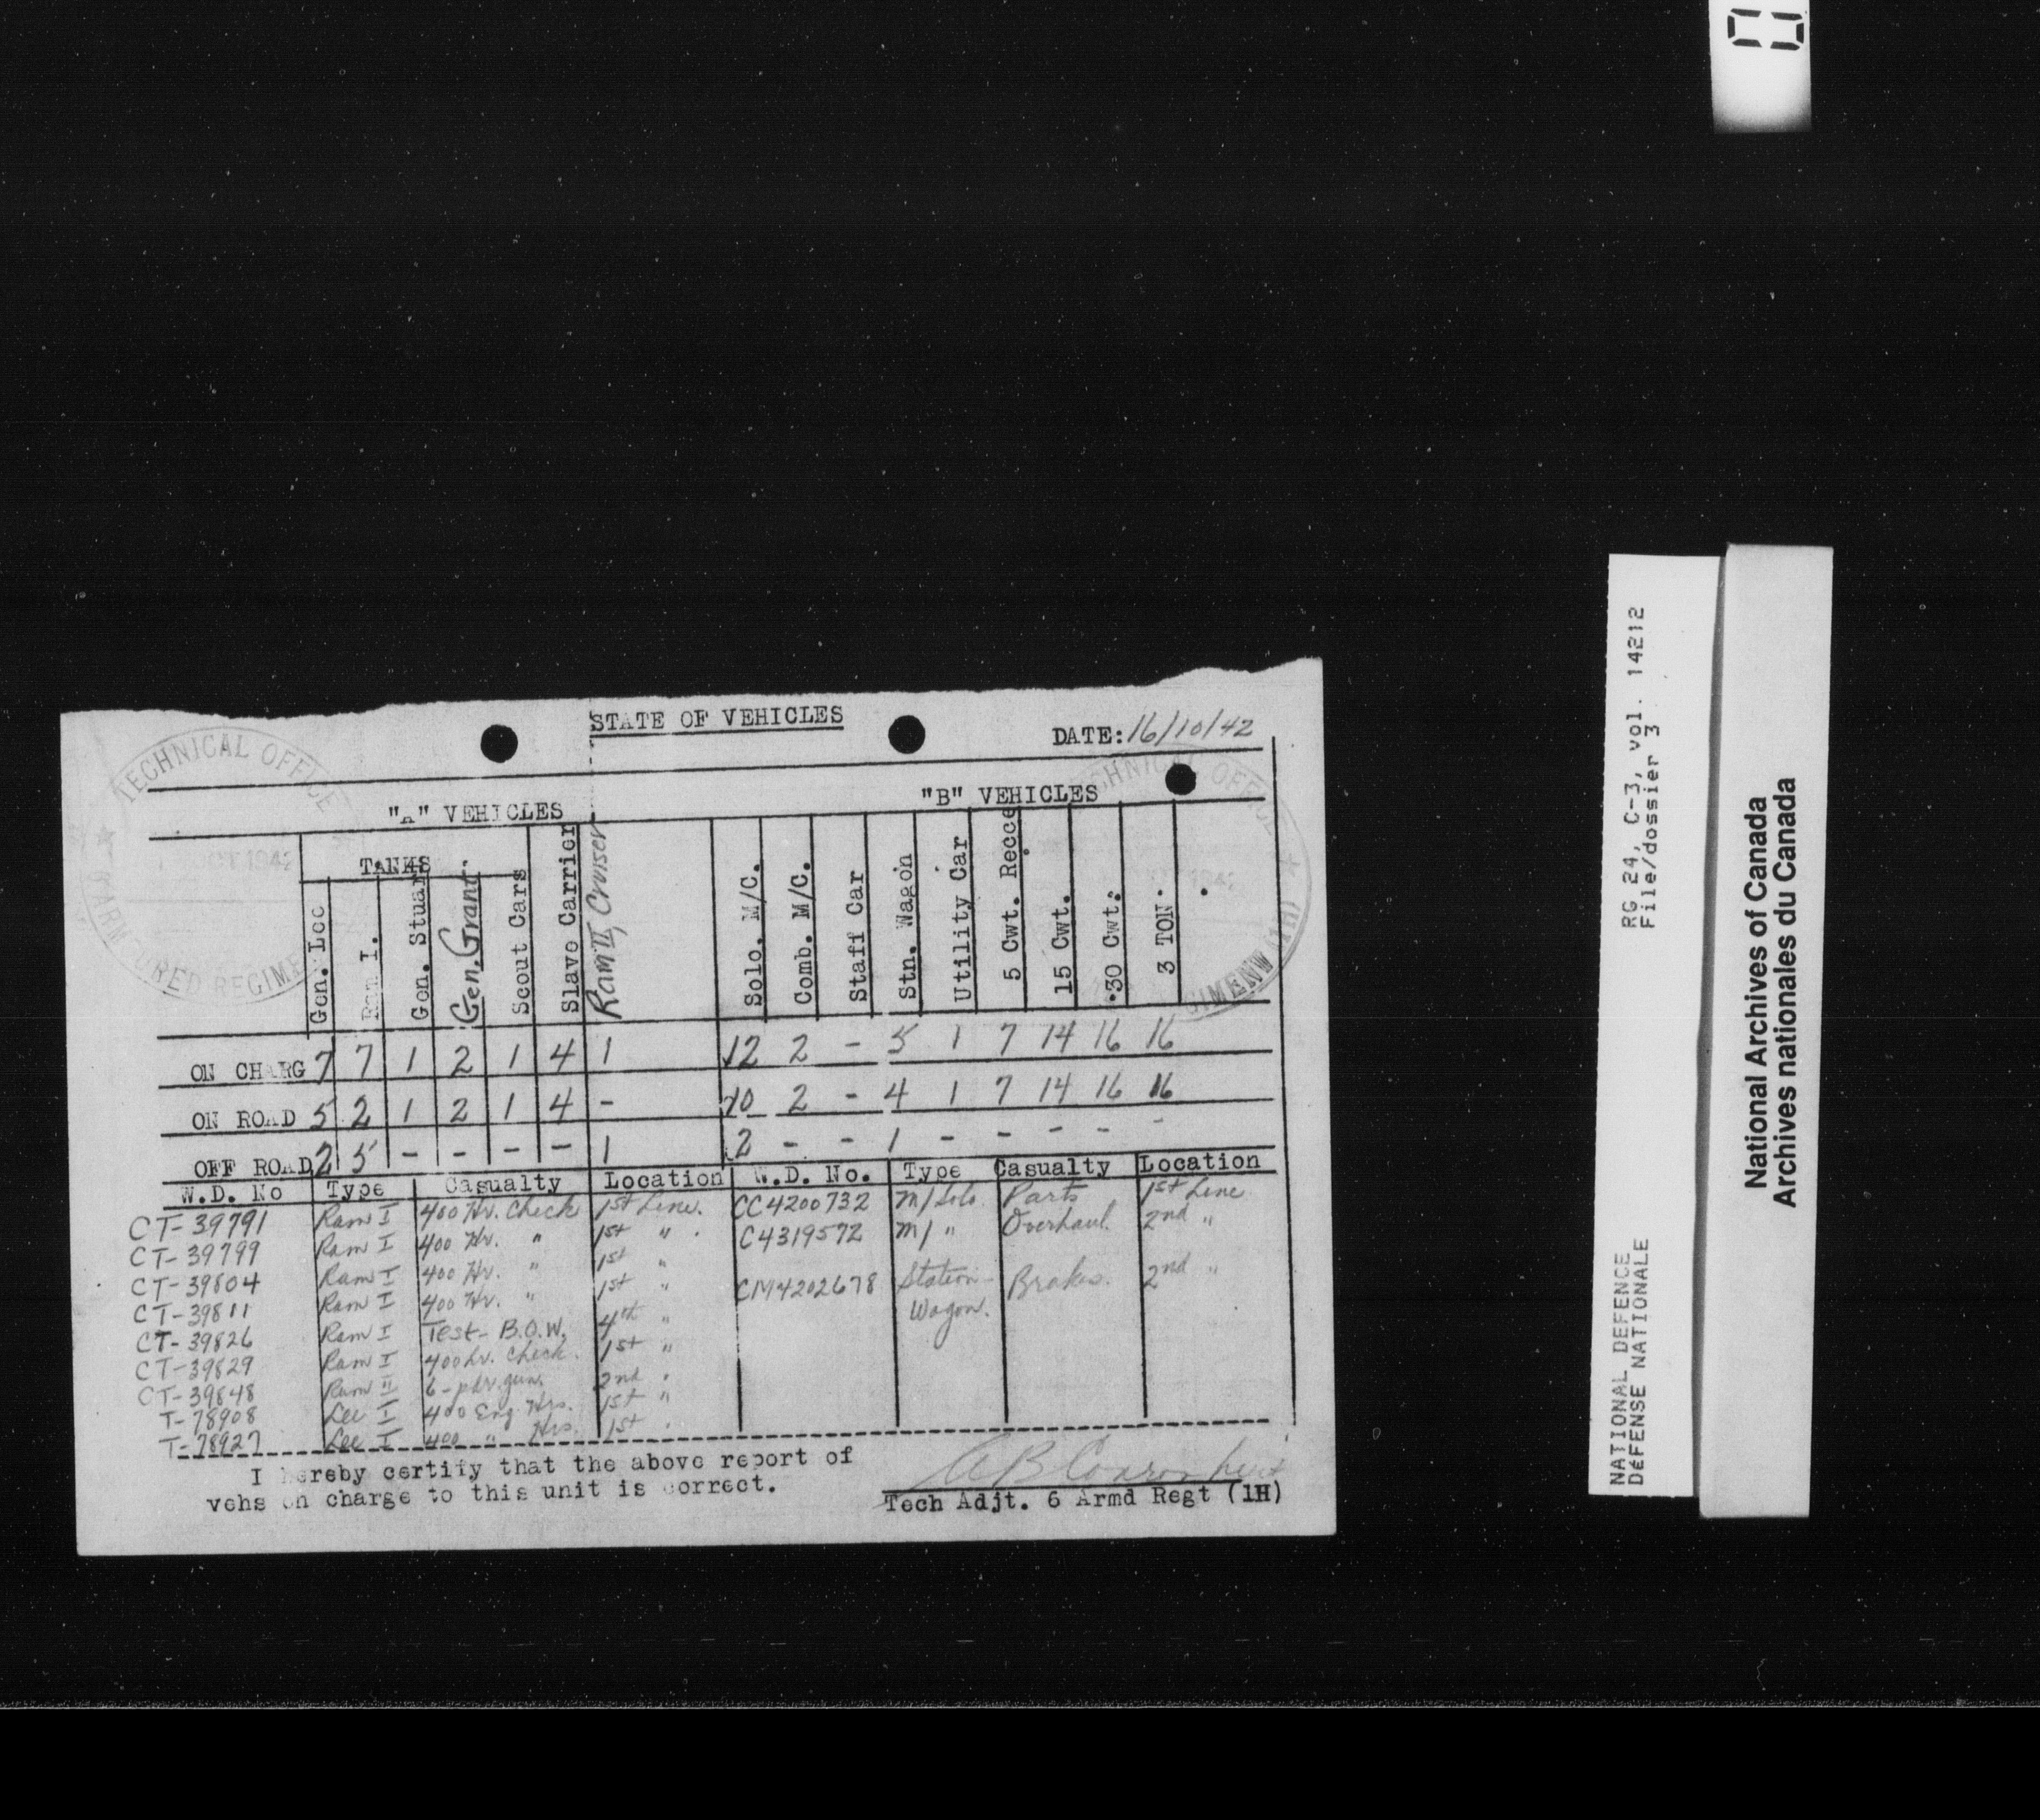 STATE OF VEHICLES
DATE: 16/10/42
TECHNICAL OFFICE
"A" VEHICLES
"B" VEHICLES
TANKS
Gen. Lee
Ram I.
Gen. Stuart
Gen. Grant.
Scout Cars
Slave Carrier
Ram II, Cruiser
Solo. M/C.
Comb. M/C.
Staff Car
Stn. Wagon
Utility Car
5 Cwt. Recce
15 Cwt.
30 Cwt.
3 TON.
ON CHARG 7 7 1 2 1 4 1 12 2 - 5 1 7 14 16 16
ON ROAD 5 2 1 2 1 4 - 10 2 - 4 1 7 14 16 16
OFF ROAD 2 5 - - - - 1 2 - - 1 - - - - -
W.D. No Type Casualty Location W.D. No. Type Casualty Location
CT-39791 Ram I 400 Hr. Check 1st Line. CC4200732 M/Solo Parts 1st Line
CT-39799 Ram I 400 Hr. " 1st " . C4319572 M/ " Overhaul. 2nd "
CT-39804 Ram I 400 Hr. " 1st "
CT-39811 Ram I 400 Hr. " 1st " CM4202678 Station- Brakes. 2nd "
Wagon.
CT-39826 Ram I Test- B.O.W. 4th "
CT-39829 Ram I 400 hr. Check. 1st "
CT-39848 Ram II 6-pdr. gun. 2nd "
T-78908 Lee I 400 Eng. Hrs. 1st "
T-78927 Lee I 400 " Hrs. 1st "
I hereby certify that the above report of
vehs on charge to this unit is correct.
Tech Adjt. 6 Armd Regt (1H)
RG 24, C-3, vol. 14212
File/dossier 3
NATIONAL DEFENCE
DÉFENSE NATIONALE
National Archives of Canada
Archives nationales du Canada